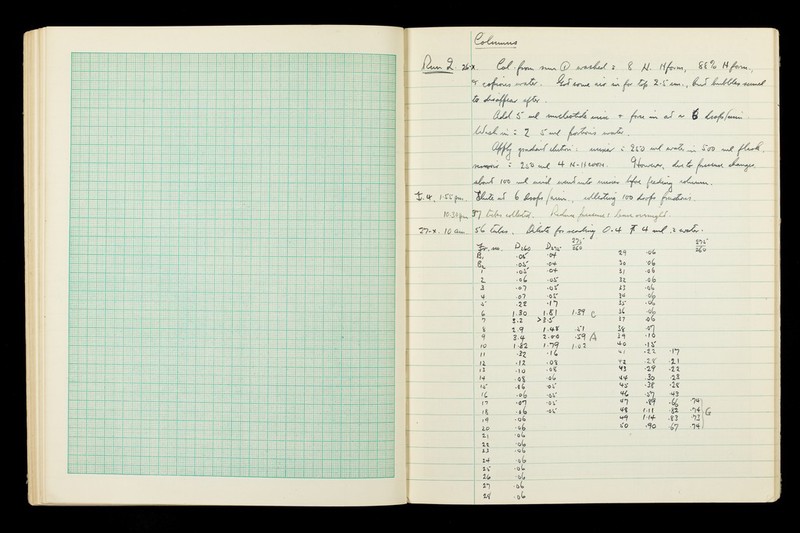 Columns
Run 2. 26-X. Col. from run ① washed : 8 N. Hform, 88% Hform,
copious water. Got some air in for top 2.5 cm., but bubbles seemed
to disappear after.
Add 5 ml nucleotide mix + force in at 6 drops/min
Wash in : 2 5 ml portions water.
Apply gradient elution : mixer : 250 ml water in 500 ml flask,
250 ml 4 N-HCOOH. However, due to pressure changes
about 100 ml acid went into mixer before feeding column.
1:55 pm. Elute at 6 drops/min, collecting 100 drops fractions.
10.30pm 37 tubes collected. Reduce pressure : leave overnight.
27-X. 10 am. 56 tubes. Dilute for reading 0.4 4 ml water.
Fr. no. D260 D275 275/260 275/260
B1 .05 .04 29 .06
B2 .05 .04 30 .06
1 .05 .04 31 .06
2 .06 .05 32 .06
3 .07 .05 33 .06
4 .07 .05 34 .06
5 .22 .17 35 .06
6 1.30 1.81 1.39 C 36 .06
7 3.2 >3.5 37 .06
8 2.9 1.48 .51 38 .07
9 3.4 2.00 .59 A 39 .10
10 1.82 1.79 1.02 40 .15
11 .32 .16 41 .22 .17
12 .12 .08 42 .28 .21
13 .10 .08 43 .29 .22
14 .08 .06 44 .30 .23
15 .06 .05 45 .38 .28
16 .06 .05 46 .57 .43
17 .07 .05 47 .89 .66 .74
18 .06 .05 48 1.11 .82 .74 G
19 .06 49 1.14 .83 .73
20 .06 50 .90 .67 .74
21 .06
22 .06
23 .06
24 .06
25 .06
26 .06
27 .06
28 .06